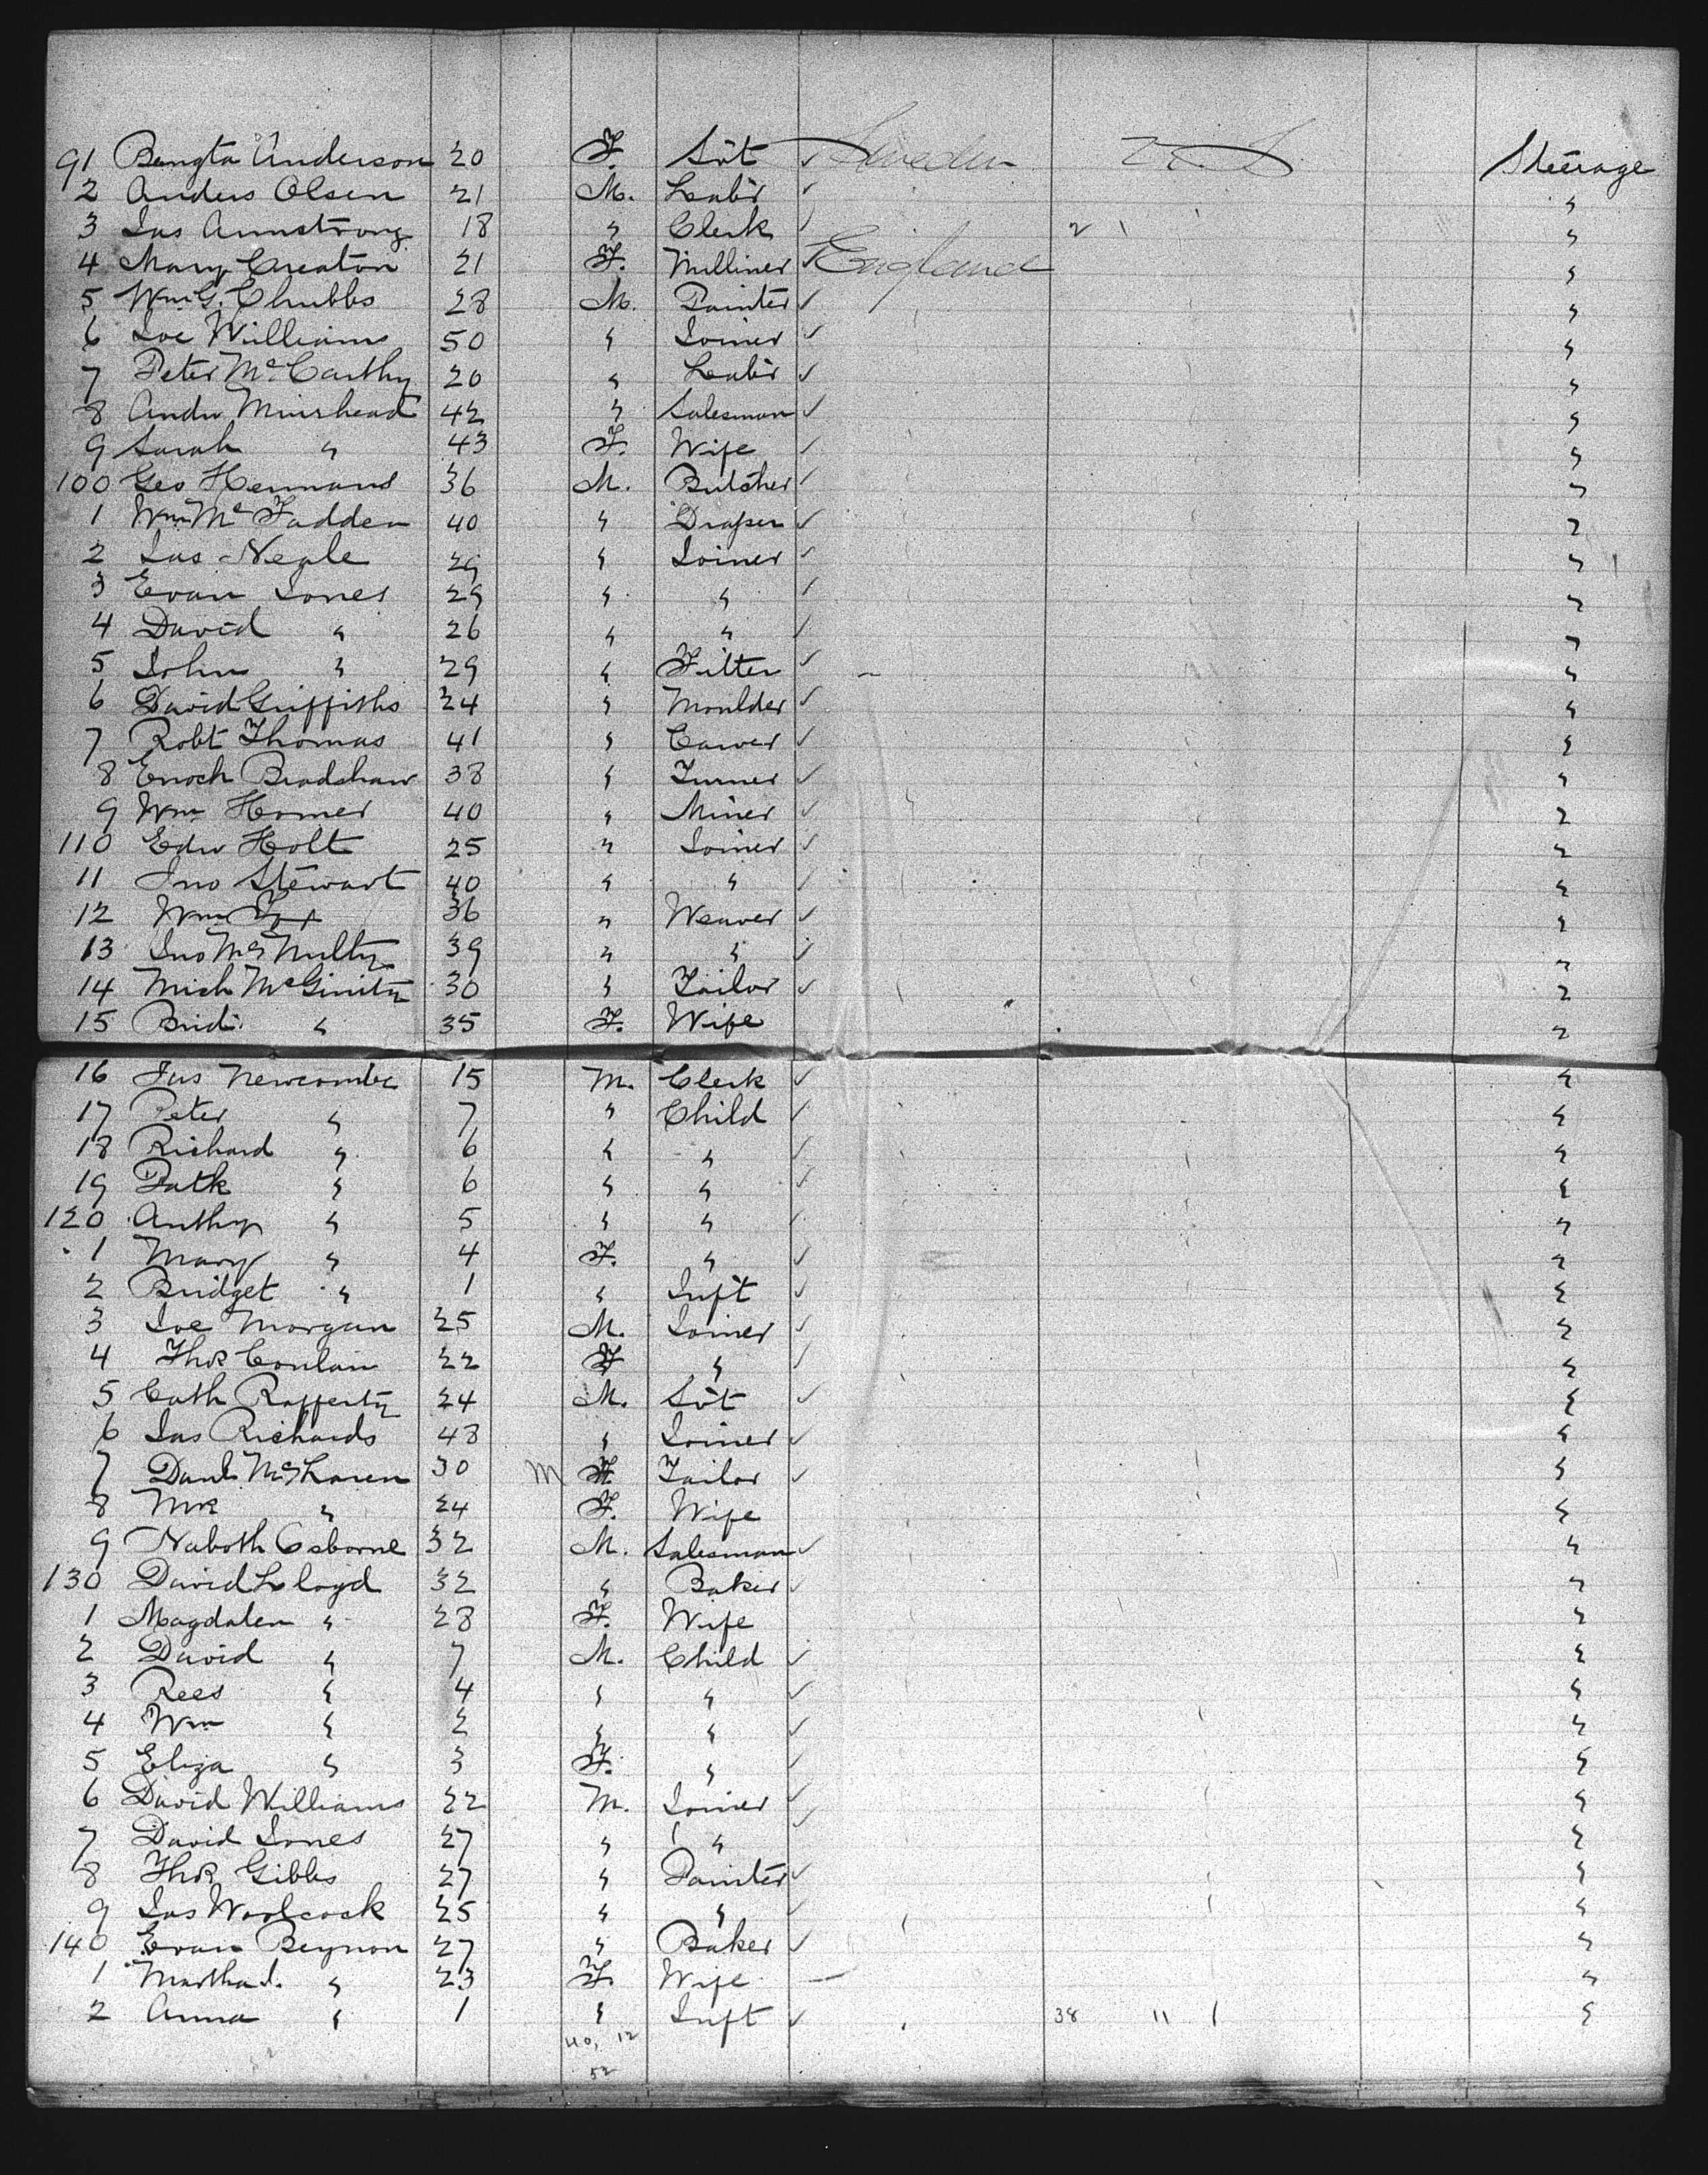 91 Bengta Anderson 20 F. Svt ✓ Sweden U S Steerage
2 Anders Olsen 21 M. Labr ✓ "
3 Jas Armstrong 18 " Clerk ✓ 2 1 "
4 Mary Creaton 21 F. Milliner ✓ England "
5 Wm G. Chubbs 28 M. Painter ✓ "
6 Joe Williams 50 " Joiner ✓ "
7 Peter McCarthy 20 " Labr ✓ "
8 Andw Muirhead 42 " Salesman ✓ "
9 Sarah " 43 F. Wife ✓ "
100 Geo Hermans 36 M. Butcher ✓ "
1 Wm McFadden 40 " Draper ✓ "
2 Jas Neale 29 " Joiner ✓ "
3 Evan Jones 29 " " ✓ "
4 David " 26 " " ✓ "
5 John " 29 " Fitter ✓ "
6 David Griffiths 24 " Moulder ✓ "
7 Robt Thomas 41 " Carver ✓ "
8 Enoch Bradshaw 38 " Turner ✓ "
9 Wm Homer 40 " Miner ✓ "
110 Edw Holt 25 " Joiner ✓ "
11 Jno Stewart 40 " " ✓ "
12 Wm Fox 36 " Weaver ✓ "
13 Jno McNulty 39 " " ✓ "
14 Mich McGinity 30 " Tailor ✓ "
15 Bridt " 35 F. Wife "
16 Jas Newcombe 15 M. Clerk ✓ "
17 Peter " 7 " Child ✓ "
18 Richard " 6 " " ✓ "
19 Patk " 6 " " ✓ "
120 Anthy " 5 " " ✓ "
1 Mary " 4 F. " ✓ "
2 Bridget " 1 " Inft ✓ "
3 Joe Morgan 25 M. Joiner ✓ "
4 Thos Conlan 22 F " ✓ "
5 Cath Rafferty 24 M. Svt ✓ "
6 Jas Richards 48 " Joiner ✓ "
7 Danl McLaren 30 M F. Tailor ✓ "
8 Mrs " 24 F. Wife "
9 Naboth Osborne 32 M. Salesman ✓ "
130 David Lloyd 32 " Baker ✓ "
1 Magdalen " 28 F. Wife "
2 David " 7 M. Child ✓ "
3 Rees " 4 " " ✓ "
4 Wm " 2 " " ✓ "
5 Eliza " 3 F. " ✓ "
6 David Williams 22 M. Joiner ✓ "
7 David Jones 27 " " ✓ "
8 Thos Gibbs 27 " Painter ✓ "
9 Jas Woolcock 25 " " ✓ "
140 Evan Beynon 27 " Baker ✓ "
1 Martha J. " 23 F. Wife "
2 Anna " 1 " Inft ✓ 38 11 1 "
40, 12
52